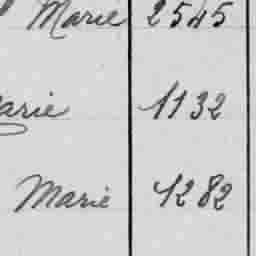 Marie 2545
arie 1132
Marie 1282